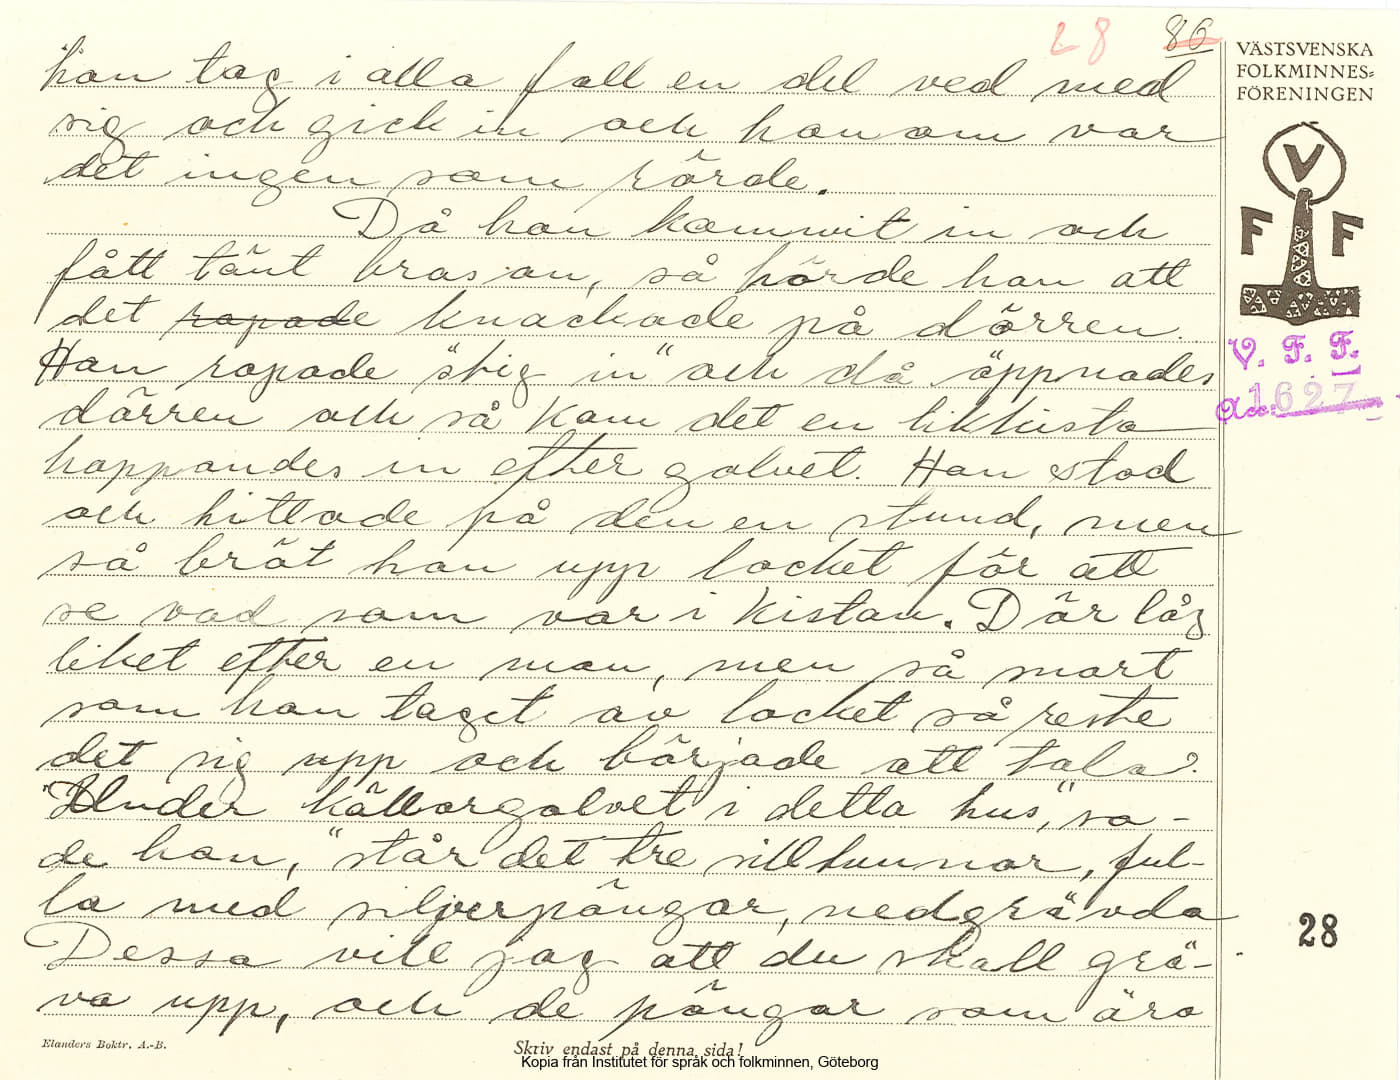 28 86
han tag i alla fall en del ved med
sig och gick in och honom var
det ingen som rörde.
Då han kommit in och
fått tänt brasan, så hörde han att
det ropade knackade på dörren.
Han ropade "stig in" och då öppnades
dörren och så kom det en likkista
hoppandes in efter golvet. Han stod
och tittade på den en stund, men
så bröt han upp locket för att
se vad som var i kistan. Där låg
liket efter en man, men så snart
som han taget av locket så reste
det sig upp och började att tala.
"Under källargolvet i detta hus," sa-
de han, "står det tre silltunnor, ful-
la med silverpängar, nedgrävda
Dessa vill jag att du skall grä-
va upp, och de pängar som äro
VÄSTSVENSKA
FOLKMINNES-
FÖRENINGEN
V
F F
V. F. F.
Acc. 1627
28
Elanders Boktr. A.-B.
Skriv endast på denna sida!
Kopia från Institutet för språk och folkminnen, Göteborg